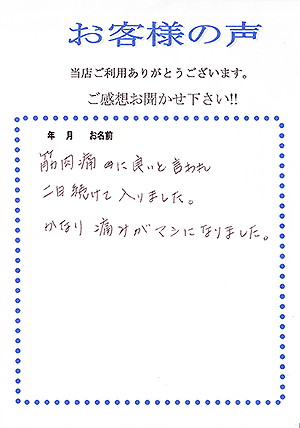 お客様の声
当店ご利用ありがとうございます。
ご感想お聞かせ下さい!!
年 月 お名前
筋肉痛のに良いと言われ
二日続けて入りました。
かなり痛みがマシになりました。